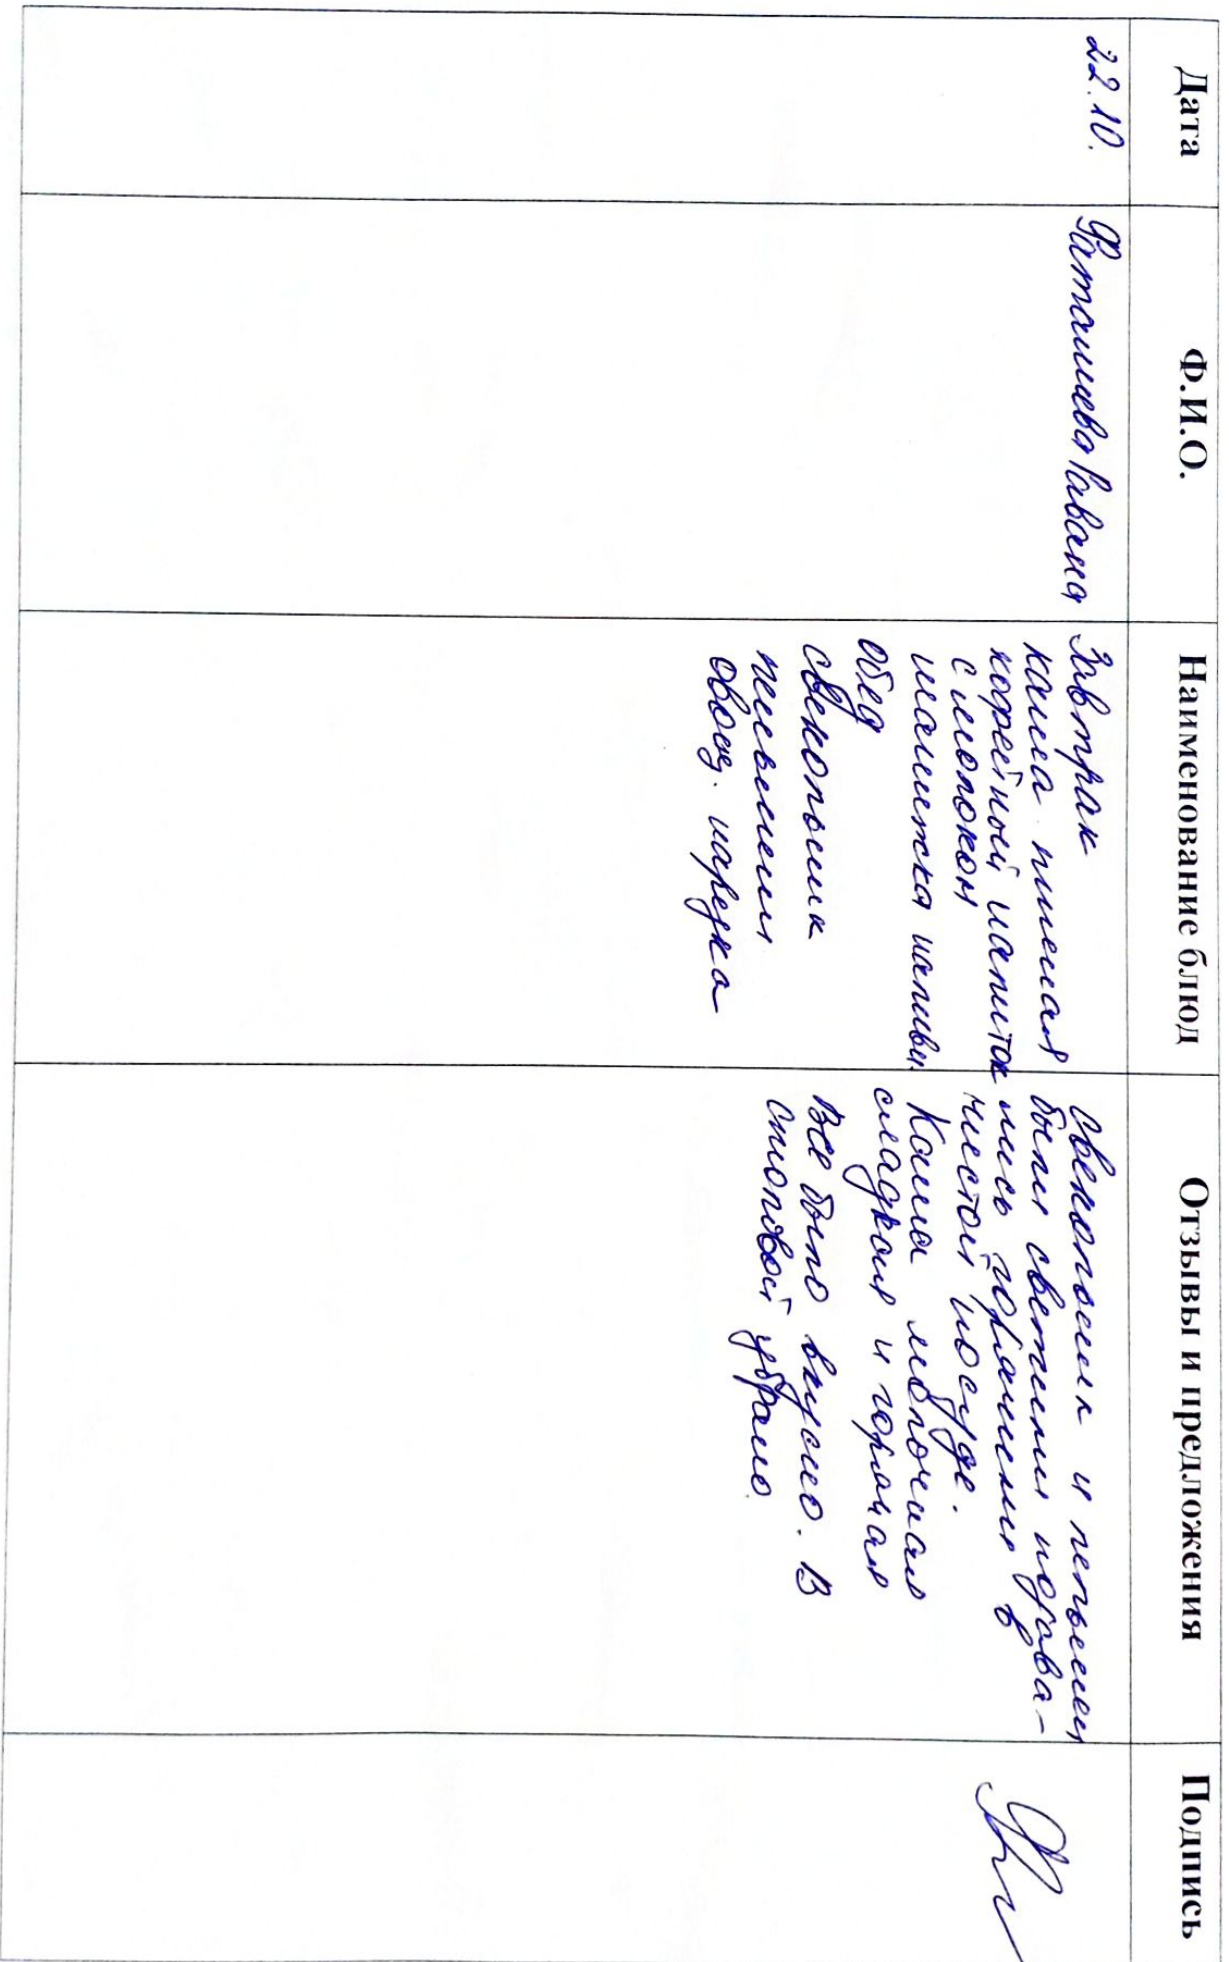 Дата
Ф.И.О.
Наименование блюд
Отзывы и предложения
Подпись
22.10.
Фаталиева Равана
Завтрак
каша пшеная
кофейный напиток
с молоком
обед
свекольник
пельмени
овощ. нарезка
Свекольник и пельмени
были свежими подава-
лись горячими в
чистой посуде.
Каша молочная
сладкая и горячая
Все было вкусно. В
столовой убрано.